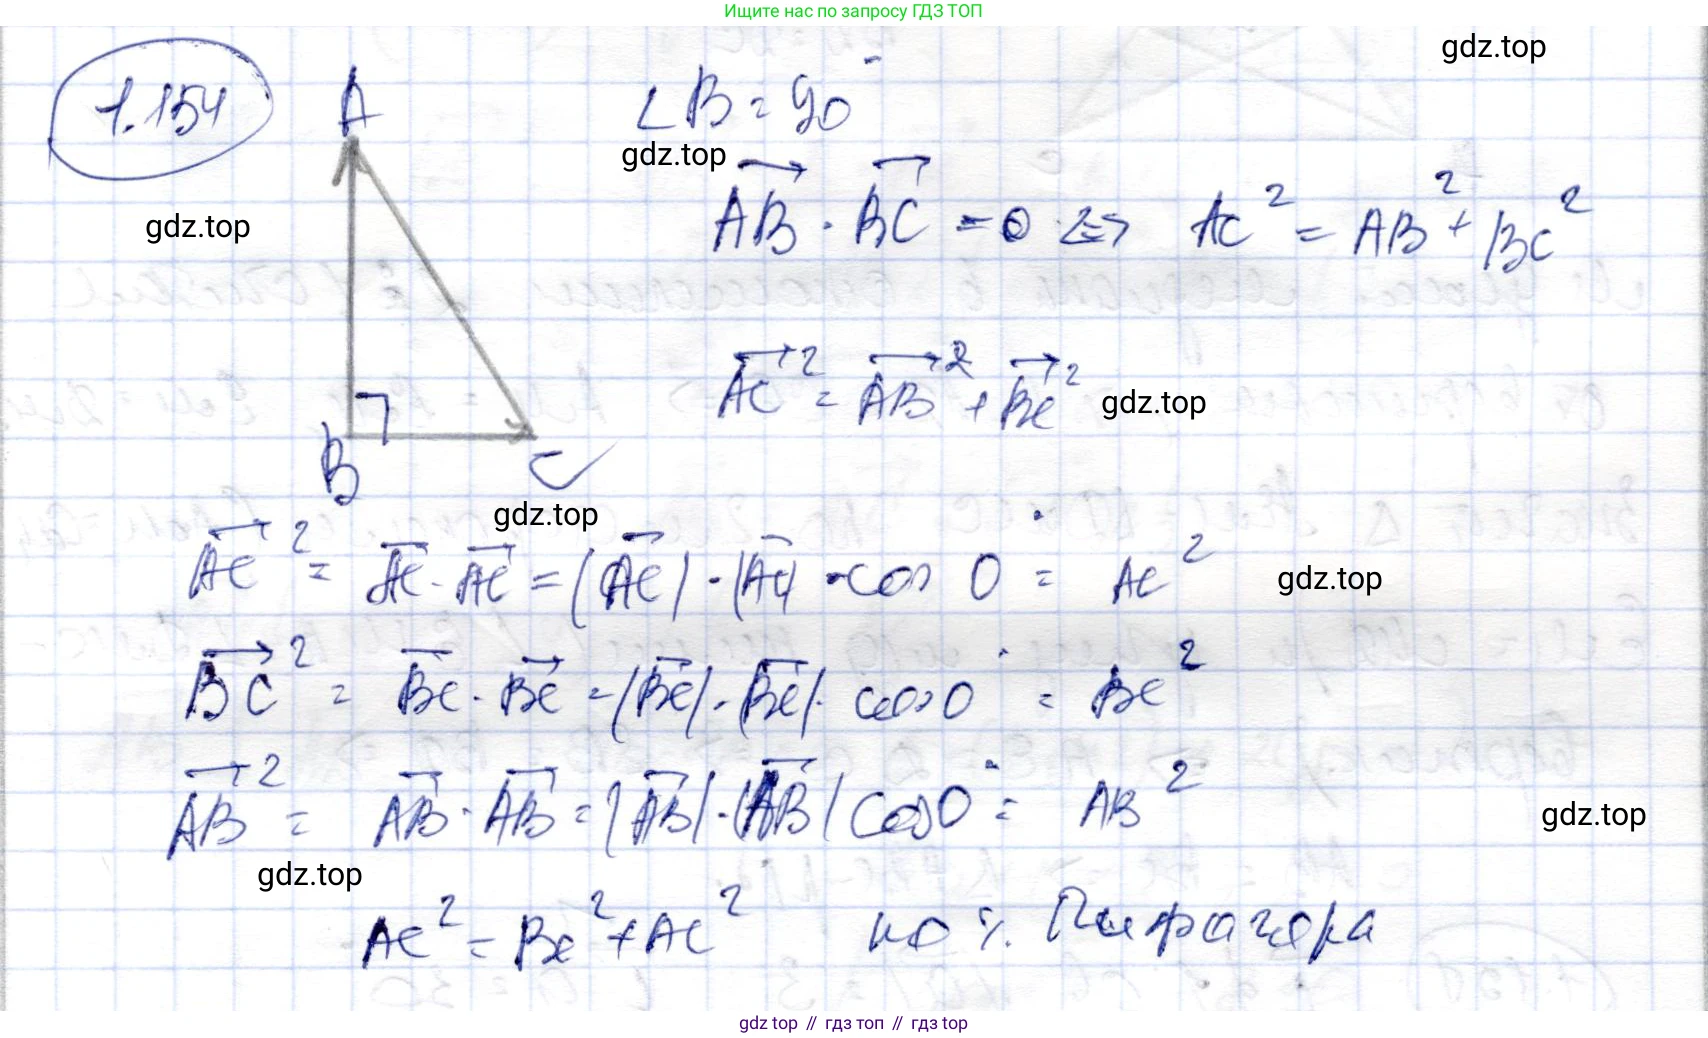 Ищите нас по запросу ГДЗ ТОП
gdz.top
1.154
A
∠B = 90°
gdz.top
gdz.top
AB · BC = 0 <=> AC² = AB² + BC²
AC² = AB² + BC²
gdz.top
B
C
gdz.top
AC² = AC · AC = |AC| · |AC| · cos 0° = AC²
gdz.top
BC² = BC · BC = |BC| · |BC| · cos 0° = BC²
AB² = AB · AB = |AB| · |AB| cos 0° = AB²
gdz.top
gdz.top
AC² = BC² + AC² по т. Пифагора
gdz top // гдз топ // gdz.top